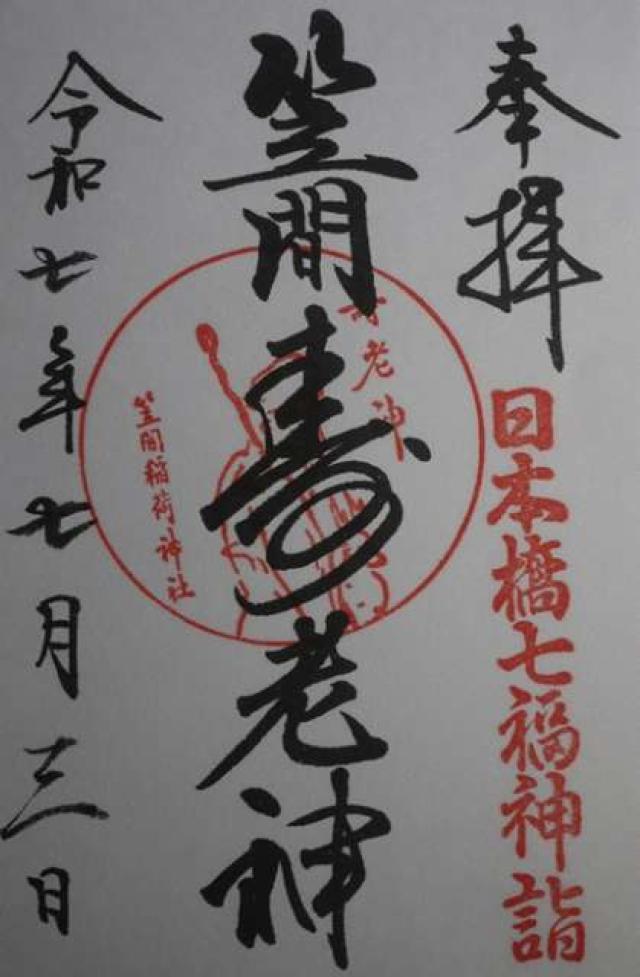 奉拝
日本橋七福神詣
笠間寿老神
寿老神
笠間稲荷神社
令和七年七月十三日